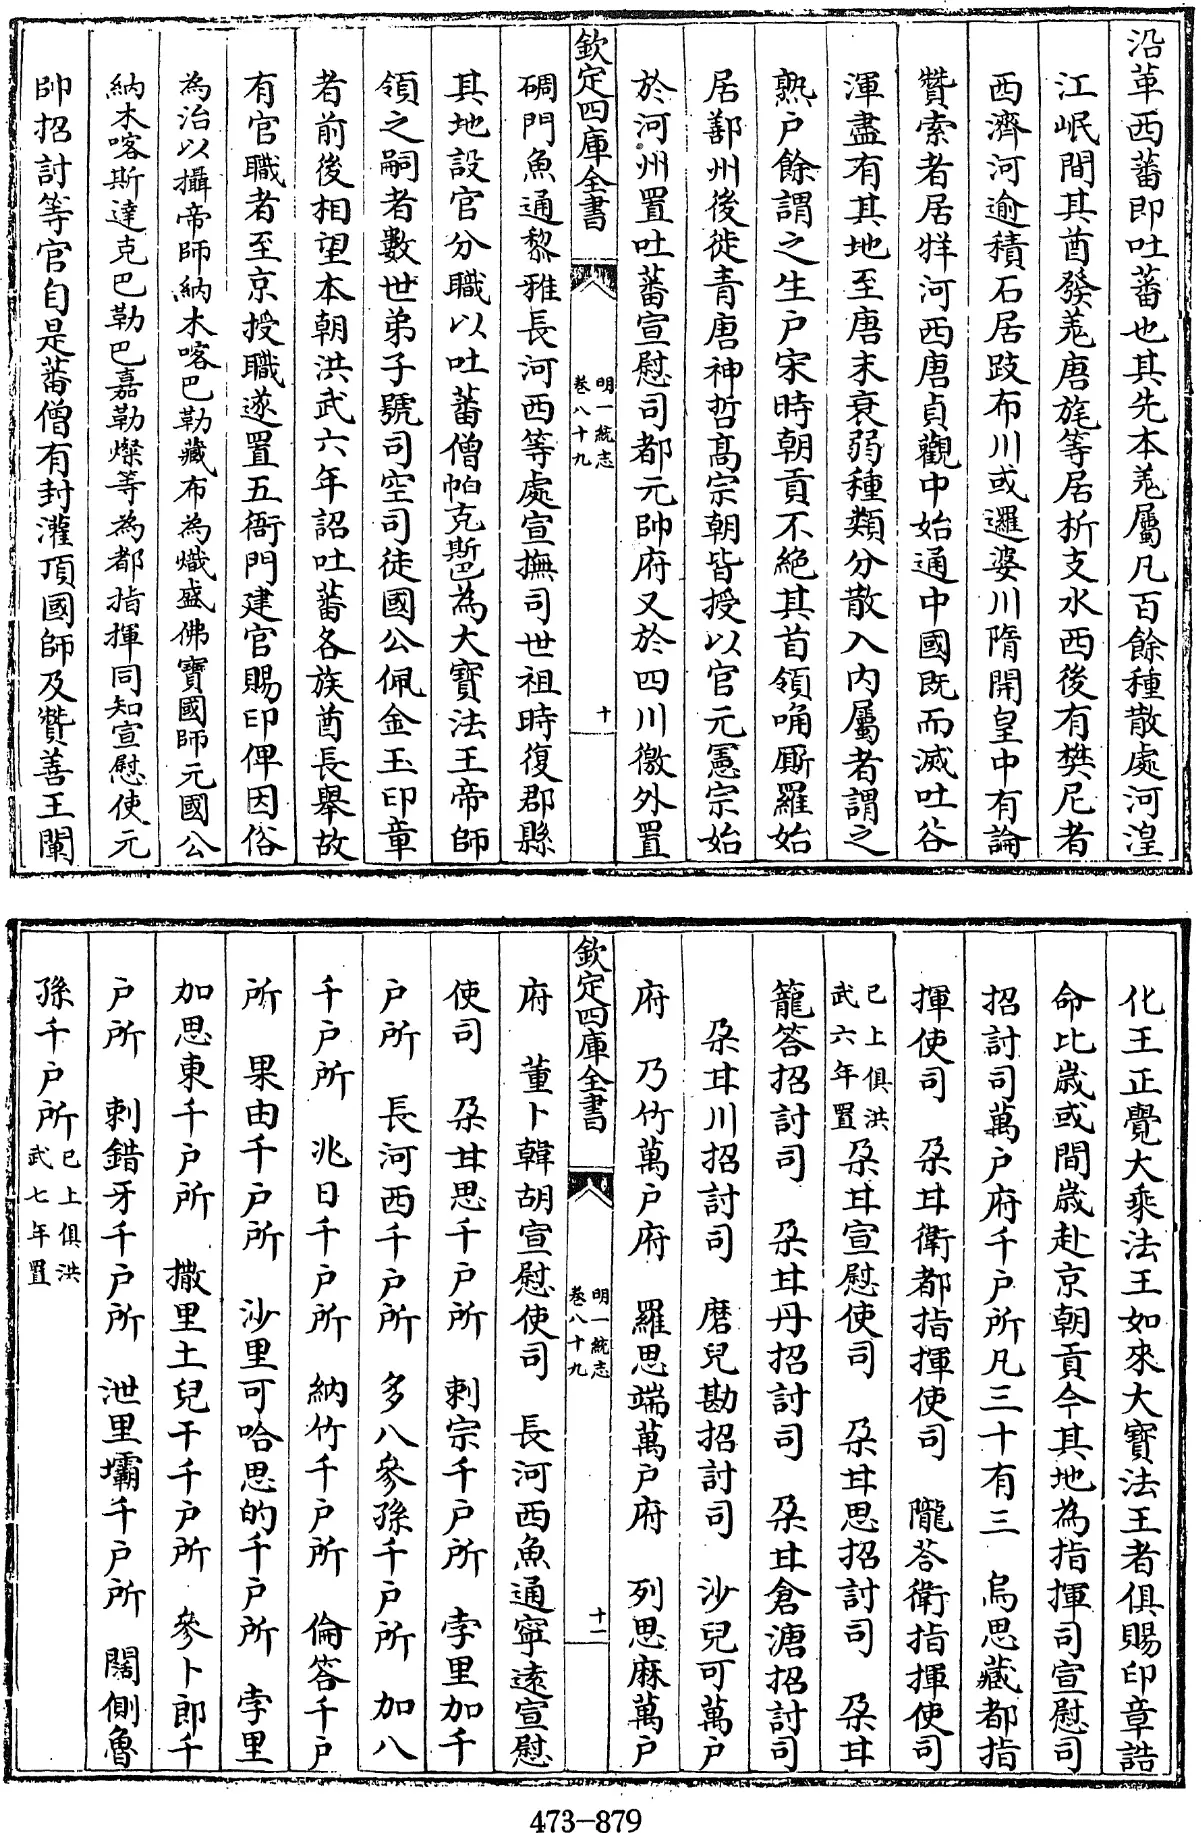 沿革西蕃即吐蕃也其先本羗屬凡百餘種散處河湟
江岷間其酋發羗唐旄等居析支水西後有樊尼者
西濟河逾積石居跂布川或邏娑川隋開皇中有論
贊索者居牂河西唐貞觀中始通中國既而滅吐谷
渾盡有其地至唐末衰弱種類分散入内屬者謂之
熟户餘謂之生户宋時朝貢不絶其首領唃厮羅始
居鄯州後徙青唐神哲髙宗朝皆授以官元憲宗始
於河州置吐蕃宣慰司都元帥府又於四川徼外置
欽定四庫全書
明一統志
卷八十九
十
碉門魚通黎雅長河西等處宣撫司世祖時復郡縣
其地設官分職以吐蕃僧帕克斯巴為大寶法王帝師
領之嗣者數世弟子號司空司徒國公佩金玉印章
者前後相望本朝洪武六年詔吐蕃各族酋長舉故
有官職者至京授職遂置五衙門建官賜印俾因俗
為治以攝帝師納木喀巴勒藏布為熾盛佛寶國師元國公
納木喀斯達克巴勒巴嘉勒燦等為都指揮同知宣慰使元
帥招討等官自是蕃僧有封灌頂國師及贊善王闡
化王正覺大乘法王如來大寶法王者俱賜印章誥
命比歲或間歲赴京朝貢今其地為指揮司宣慰司
招討司萬户府千户所凡三十有三　烏思藏都指
揮使司　朶甘衛都指揮使司　隴答衛指揮使司
已上俱洪
武六年置
朶甘宣慰使司　朶甘思招討司　朶甘
籠答招討司　朶甘丹招討司　朶甘倉溏招討司
朶甘川招討司　磨兒勘招討司　沙兒可萬户
府　乃竹萬户府　羅思端萬户府　列思麻萬户
欽定四庫全書
明一統志
卷八十九
十一
府　董卜韓胡宣慰使司　長河西魚通寧遠宣慰
使司　朶甘思千户所　剌宗千户所　孛里加千
户所　長河西千户所　多八參孫千户所　加八
千户所　兆日千户所　納竹千户所　倫答千户
所　果由千户所　沙里可哈思的千户所　孛里
加思東千户所　撒里土兒干千户所　參卜郎千
户所　剌錯牙千户所　泄里壩千户所　闊側魯
孫千户所
已上俱洪
武七年置
473-879